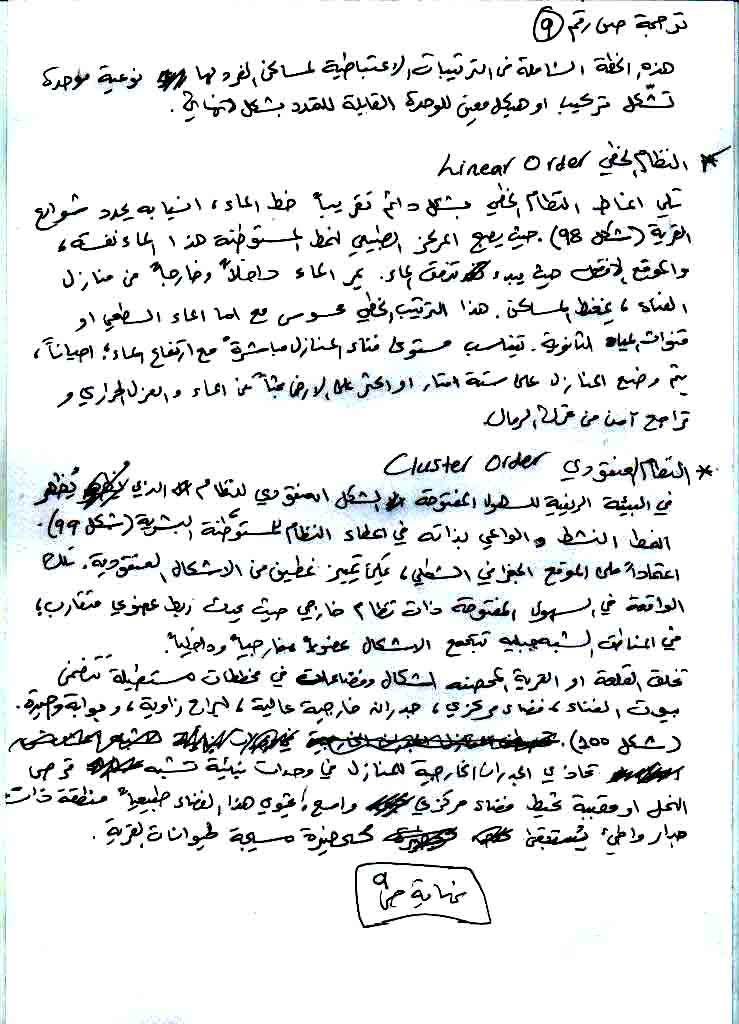 ترجمة ص رقم (9)
هذه الخطة الشاملة في الترتيبات الاعتباطية لمساكن الفرد لها نوعية موحدة
تشكل تركيب او هيكل معين للوحدة القابلة للتمدد بشكل لانهائي.
* النظام الخطي Linear Order
تلي انماط النظام الخطي بشكل دائم تقريباً خط الماء، انسيابه يحدد شوارع
القرية (شكل 98). حيث يصبح المركز الطبيعي لنمط المستوطنة هذا الماء نفسه،
والموقع الافضل حيث يبدء تدفق الماء. يمر الماء داخلاً وخارجاً من منازل
الفناء، المساكن. هذا الترتيب الخطي محسوس مع اما الماء السطحي او
قنوات المياه الثانوية. تتناسب مستوى فناء المنازل مباشرة مع ارتفاع الماء؛ احياناً،
يتم وضع المنازل على ستة امتار او اكثر على الارض بحثاً عن الماء و العزل الحراري و
تراجع آمن من الرمال.
* النظام العنقودي Cluster Order
في البيئة الريفية للسهول المفتوحة الشكل العنقودي للنظام الذي يُظهر
النمط النشط والواعي بذاته في اعطاء النظام للمستوطنة البشرية (شكل 99).
اعتماداً على الموقع الجغرافي، يمكن تمييز نمطين من الاشكال العنقودية. تلك
الواقعة في السهول المفتوحة ذات نظام خارجي حيث يحدث ربط عضوي متقارب؛
في المناطق الشبه جبلية تتجمع الاشكال عضوياً خارجياً وداخلياً.
تخلق القلعة او القرية المحصنه اشكال وفضاءات في مخططات مستطيلة تتضمن
بيوت الفناء، فضاء مركزي، جدران خارجية عالية، ابراج زاوية، و بوابة وحيدة.
(شكل 100).
تحاذي الجدران الخارجية للمنازل في وحدات بنائية تشبه قرص
النحل او مقببة تحيط فضاء مركزي واسع؛ يحتوي هذا الفناء طبيعياً منطقة ذات
جدار واطئ كحضيرة مسيجة لحيوانات القرية.
نهاية ص 9